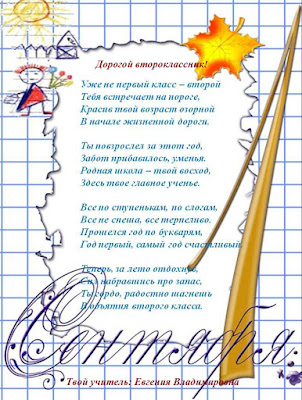 Дорогой второклассник!
Уже не первый класс – второй
Тебя встречает на пороге,
Красив твой возраст озорной
В начале жизненной дороги.
Ты повзрослел за этот год,
Забот прибавилось, уменья.
Родная школа – твой восход,
Здесь твое главное ученье.
Все по ступенькам, по слогам,
Все не спеша, все терпеливо.
Прошелся год по букварям,
Год первый, самый год счастливый.
Теперь, за лето отдохнув,
Сил набравшись про запас,
Ты гордо, радостно шагнешь
В объятия второго класса.
1 Сентября.
Твой учитель: Евгения Владимировна